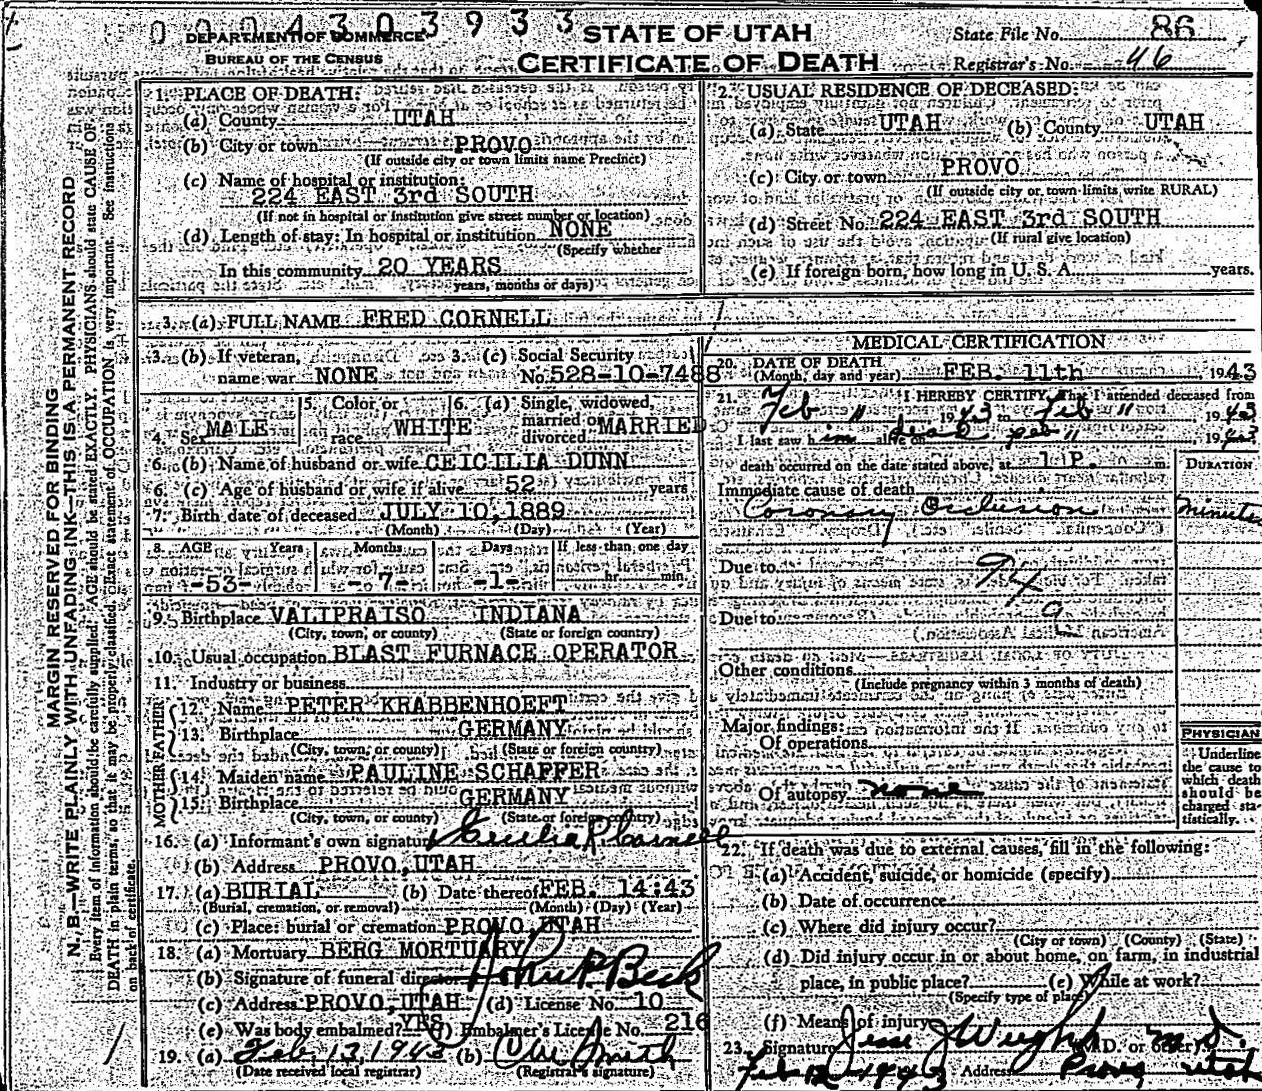 0 0 0 4 3 0 3 9 3 3
DEPARTMENT OF COMMERCE
BUREAU OF THE CENSUS
STATE OF UTAH
CERTIFICATE OF DEATH
State File No. 86
Registrar's No. 46
MARGIN RESERVED FOR BINDING
N. B.—WRITE PLAINLY WITH UNFADING INK—THIS IS A PERMANENT RECORD
Every item of information should be carefully supplied. AGE should be stated EXACTLY. PHYSICIANS should state CAUSE OF
DEATH in plain terms, so that it may be properly classified. Exact statement of OCCUPATION is very important. See instructions
on back of certificate.
1. PLACE OF DEATH:
(a) County UTAH
(b) City or town PROVO
(If outside city or town limits name Precinct)
(c) Name of hospital or institution:
224 EAST 3rd SOUTH
(If not in hospital or institution give street number or location)
(d) Length of stay: In hospital or institution NONE
(Specify whether
In this community 20 YEARS
years, months or days)
2. USUAL RESIDENCE OF DECEASED:
(a) State UTAH (b) County UTAH
(c) City or town PROVO
(If outside city or town limits write RURAL)
(d) Street No. 224 EAST 3rd SOUTH
(If rural give location)
(e) If foreign born, how long in U. S. A. years.
3. (a) FULL NAME FRED CORNELL
3. (b) If veteran, name war NONE
3. (c) Social Security No. 528-10-7488
4. Sex MALE
5. Color or race WHITE
6. (a) Single, widowed, married or divorced MARRIED
6. (b) Name of husband or wife CEICILIA DUNN
6. (c) Age of husband or wife if alive 52 years
7. Birth date of deceased JULY 10,1889
(Month) (Day) (Year)
8. AGE Years Months Days If less than one day
-53- -7- -1- hr. min.
9. Birthplace VALIPRAISO INDIANA
(City, town, or county) (State or foreign country)
10. Usual occupation BLAST FURNACE OPERATOR
11. Industry or business
FATHER
12. Name PETER KRABBENHOEFT
13. Birthplace GERMANY
(City, town, or county) (State or foreign country)
MOTHER
14. Maiden name PAULINE SCHAFFER
15. Birthplace GERMANY
(City, town, or county) (State or foreign country)
16. (a) Informant's own signature Cecilia R. Cornell
(b) Address PROVO, UTAH
17. (a) BURIAL (b) Date thereof FEB. 14:43
(Burial, cremation, or removal) (Month) (Day) (Year)
(c) Place: burial or cremation PROVO, UTAH
18. (a) Mortuary BERG MORTUARY
(b) Signature of funeral director John P. Beck
(c) Address PROVO, UTAH (d) License No. 10
(e) Was body embalmed? YES (f) Embalmer's License No. 216
19. (a) Feb. 13, 1943 (b) Smith
(Date received local registrar) (Registrar's signature)
MEDICAL CERTIFICATION
20. DATE OF DEATH
(Month, day and year) FEB. 11th, 1943
21. I HEREBY CERTIFY, That I attended deceased from
Feb 11 1943 to Feb 11, 1943
I last saw him alive on dead Feb 11, 1943
death occurred on the date stated above, at 1 P. m.
DURATION
Immediate cause of death
Coronary Occlusion Minutes
Due to
94a
Due to
Other conditions
(Include pregnancy within 3 months of death)
Major findings:
Of operations
Of autopsy none
PHYSICIAN
Underline
the cause to
which death
should be
charged sta-
tistically.
22. If death was due to external causes, fill in the following:
(a) Accident, suicide, or homicide (specify)
(b) Date of occurrence
(c) Where did injury occur?
(City or town) (County) (State)
(d) Did injury occur in or about home, on farm, in industrial
place, in public place? (e) While at work?
(Specify type of place)
(f) Means of injury
23. Signature Jesse J Weight M.D. (M. D. or other)
Feb 12 1943 Address Provo Utah